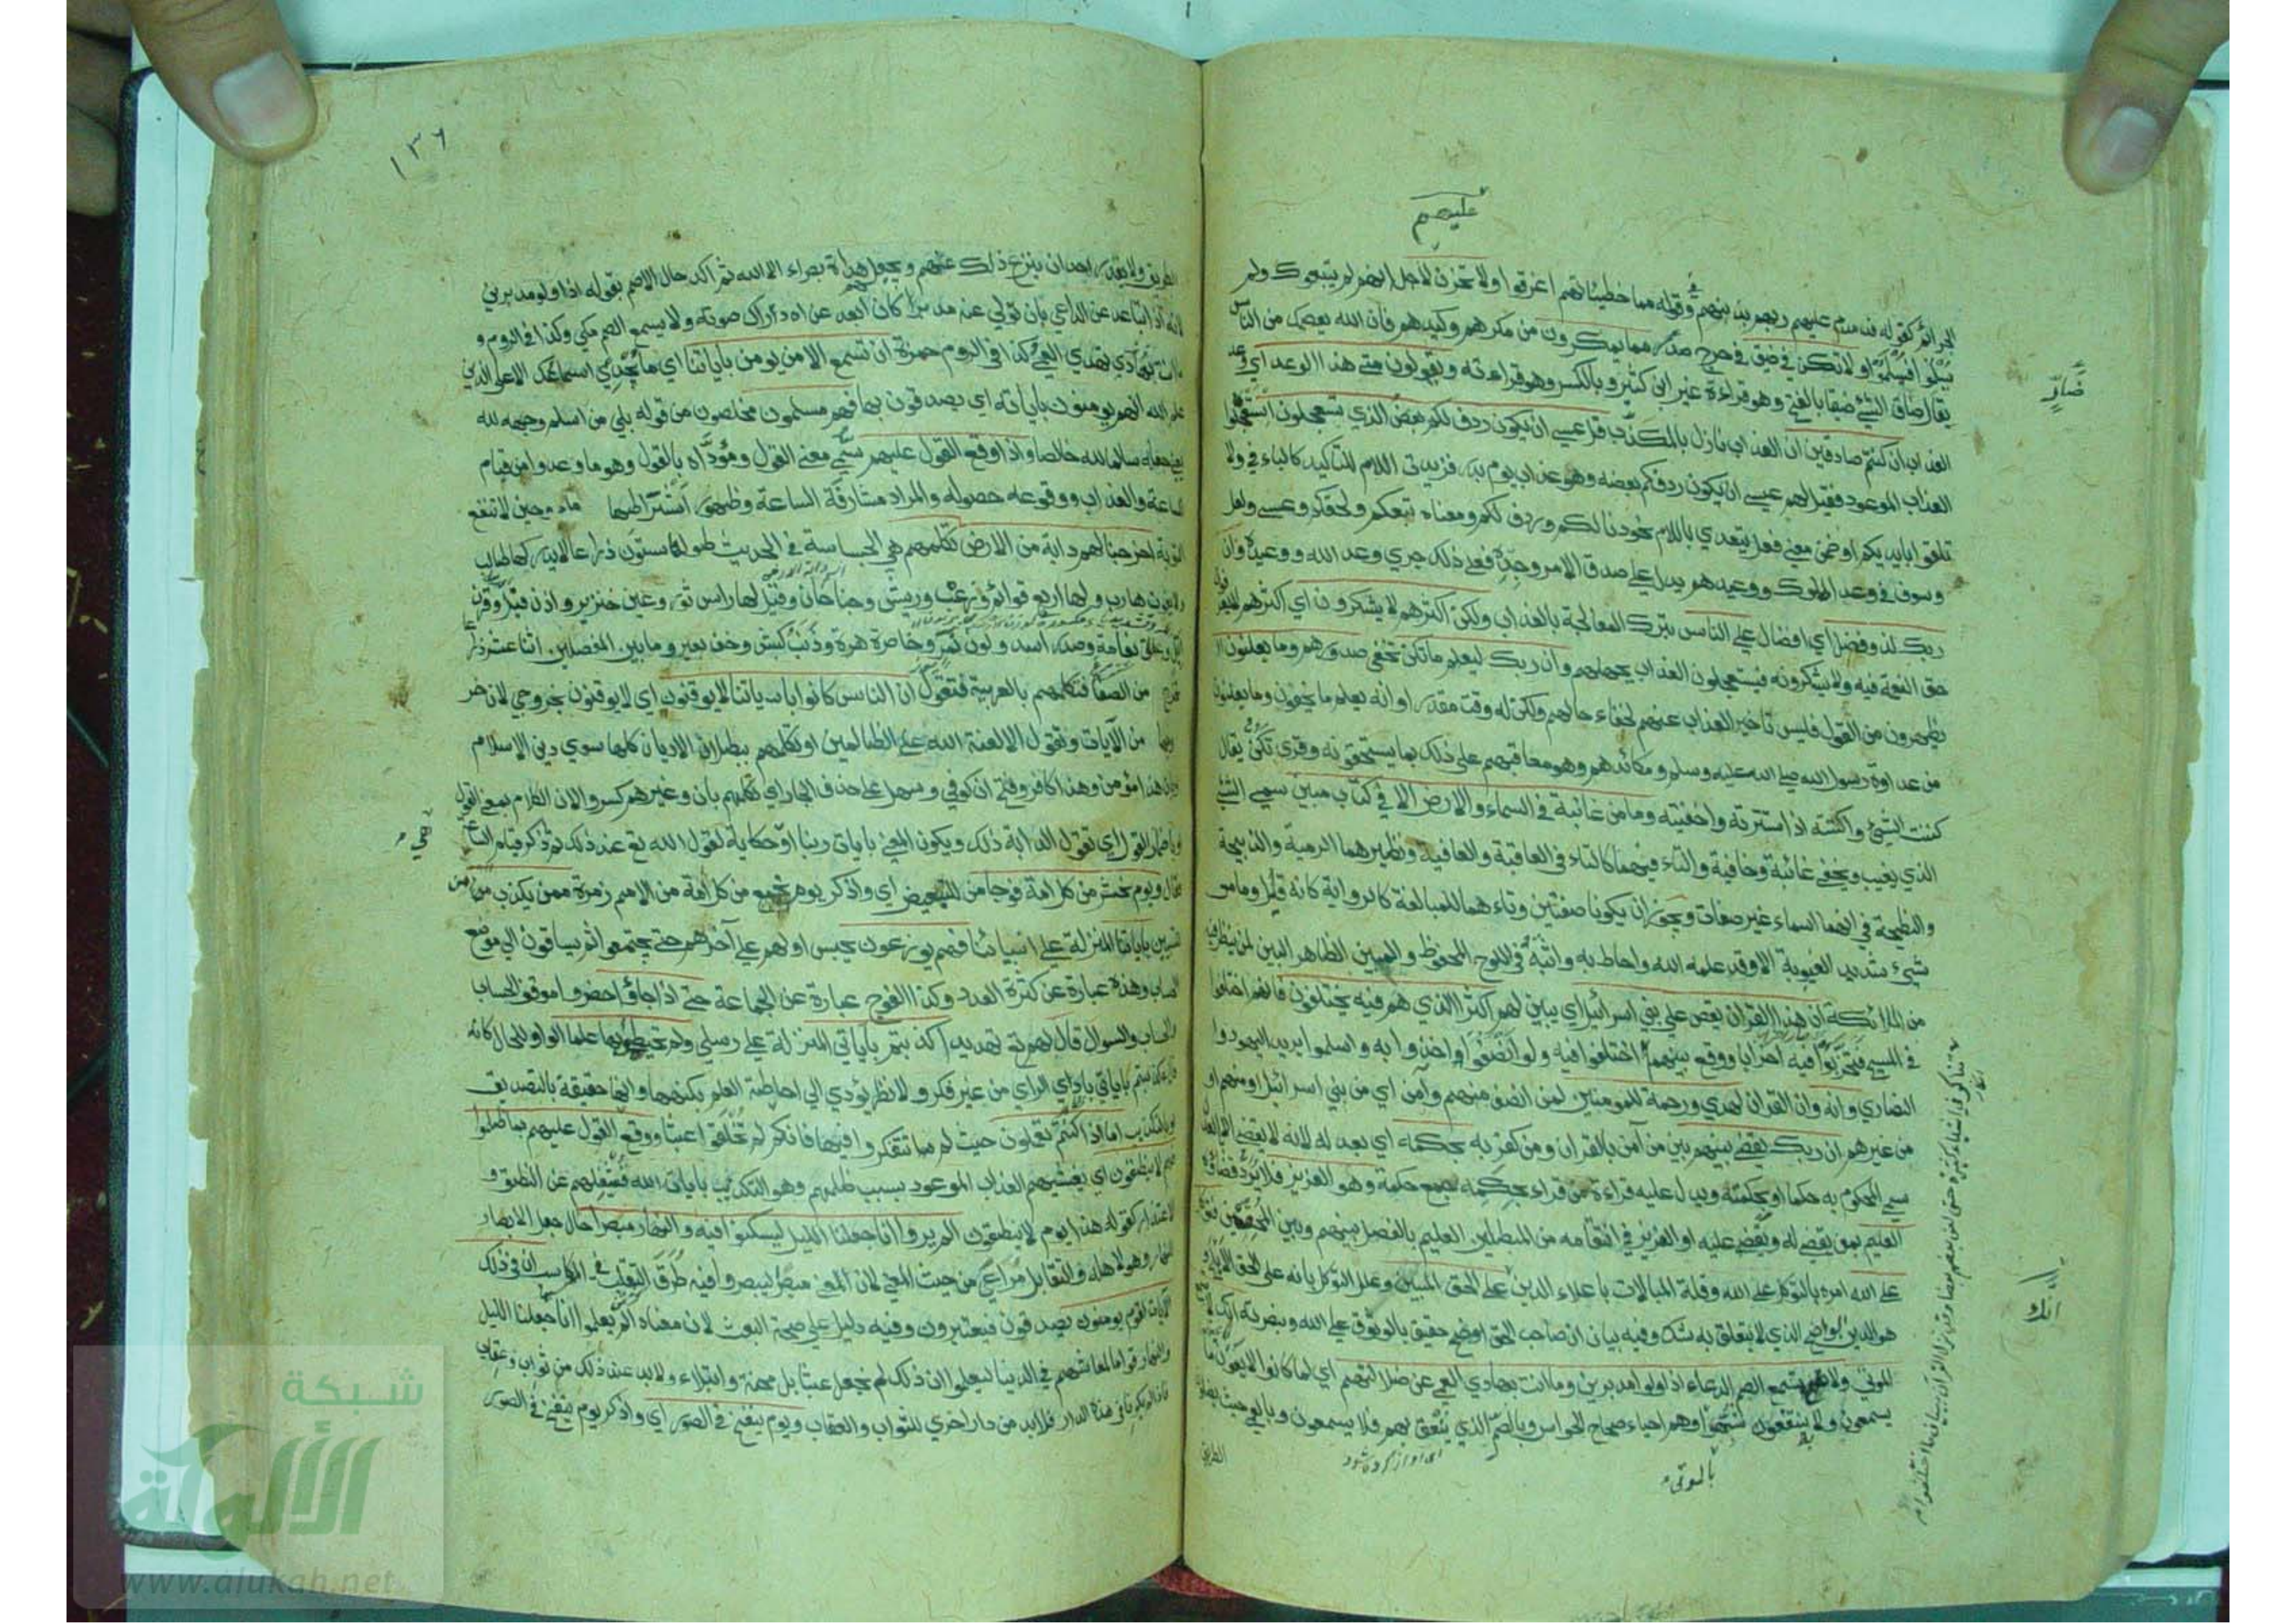 عليهم
الجرائم كقوله فدمدم عليهم ربهم بذنبهم وقوله مما خطيئاتهم اغرقوا ولا تحزن لاجل انهم لم يتبعوك ولم
يسلموا فيسلموا ولا تكن في ضيق في حرج صدر مما يمكرون من مكرهم وكيدهم فان الله يعصمك من الناس
يقال ضاق الشئ ضيقا بالفتح وهو قراءة غير ابن كثير وبالكسر وهو قراءته ويقولون متى هذا الوعد اي وعد
العذاب ان كنتم صادقين ان العذاب نازل بالمكذب قل عسى ان يكون ردف لكم بعض الذي تستعجلون استعجلوا
العذاب الموعود فقيل لهم عسى ان يكون ردفكم بعضه وهو عذاب يوم بدر فزيدت اللام للتاكيد كالباء في ولا
تلقوا بايديكم او ضمن معنى فعل يتعدي باللام نحو دنا لكم وردف لكم ومعناه تبعكم ولحقكم وعسى ولعل
وسوف في وعد الملوك ووعيدهم يدل على صدق الامر وجده فعلى ذلك جري وعد الله ووعيده وان
ربك لذو فضل اي افضال على الناس بترك المعاجلة بالعذاب ولكن اكثرهم لا يشكرون اي اكثرهم لا يعرفون
حق النعمة فيه ولا يشكرونه فيستعجلون العذاب بجهلهم وان ربك ليعلم ما تكن تخفي صدورهم وما يعلنون
يظهرون من القول فليس تاخير العذاب عنهم لخفاء حالهم ولكن له وقت مقدر او انه يعلم ما يخفون وما يعلنون
من عداوة رسول الله صلى الله عليه وسلم ومكائدهم وهو معاقبهم على ذلك بما يستحقونه وقرئ تكن يقال
كننت الشئ واكننته اذا سترته واخفيته وما من غائبة في السماء والارض الا في كتاب مبين سمي الشئ
الذي يغيب ويخفى غائبة وخافية والتاء فيهما كالتاء في العاقبة والعافية ونظيرهما الرمية والذبيحة
والنطيحة في انها اسماء غير صفات ويجوز ان يكونا صفتين وتاءهما للمبالغة كالراوية كانه قيل وما من
شئ شديد الغيبوبة الا وقد علمه الله واحاط به واثبته في اللوح المحفوظ والمبين الظاهر البين لمن ينظر فيه
من الملائكة ان هذا القرآن يقص على بني اسرائيل اي يبين لهم اكثر الذي هم فيه يختلفون فانهم اختلفوا
في المسيح فتحزبوا فيه احزابا ووقع بينهم اختلفوا فيه ولو انصفوا واخذوا به واسلموا يريد اليهود وا
النصاري وانه وان القرآن لهدي ورحمة للمومنين لمن انصف منهم وآمن اي من بني اسرائيل او منهم او
من غيرهم ان ربك يقضي بينهم بين من آمن بالقرآن ومن كفر به بحكمه اي بعدله لانه لا يقضي الا بالعدل
سمي المحكوم به حكما او بحكمته ويدل عليه قراءة من قراء بحكمه جمع حكمة وهو العزيز فلا يرد قضاؤه
العليم بمن يقضي له ويقضى عليه او العزيز في انتقامه من المبطلين العليم بالفصل بينهم وبين المحقين فتوكل
على الله امره بالتوكل على الله وقلة المبالات باعداء الدين انك على الحق المبين وعلل التوكل بانه على الحق الابلج و
هو الدين الواضح الذي لا يتعلق به شك وفيه بيان ان صاحب الحق حقيق بالوثوق على الله وبنصرته انك لا تسمع
الموتى ولا تسمع الصم الدعاء اذا ولوا مدبرين وما انت بهادي العمي عن ضلالتهم اي لما كانوا لا يعون ما
يسمعون ولا ينتفعون شبهوا وهم احياء صحاح الحواس وبالصم الذي ينعق بهم فلا يسمعون وبالعمي حيث يضلون
بالموتى
الطريق
ضائر
انك
١٣٦
الطريق ولا يقدر احد ان ينزع ذلك عنهم ويجعل هداة بصراء الا الله ثم اكد حال الاصم بقوله اذا ولوا مدبرين
لانه اذا تباعد عن الداعي بان تولى عنه مدبرا كان ابعد عن ادراك صوته ولا يسمع الصم مكي وكذا في الروم و
ما انت تهدي العمي وكذا في الروم حمزة ان تسمع الا من يومن بآياتنا اي ما يجدي اسماعك الا على الذين
علم الله انهم يومنون بآياته اي يصدقون بها فهم مسلمون مخلصون من قوله بلى من اسلم وجهه لله
يعني جعله سالما لله خالصا واذا وقع القول عليهم سمى معنى القول ومؤداه بالقول وهو ما وعدوا من قيام
الساعة والعذاب ووقوعه حصوله والمراد مشارفة الساعة وظهور اشراطها وحين لا تنفع
التوبة اخرجنا لهم دابة من الارض تكلمهم هي الجساسة في الحديث طولها ستون ذراعا لا يدركها طالب
ولا يفوتها هارب ولها اربع قوائم وزغب وريش وجناحان وقيل لها راس ثور وعين خنزير واذن فيل وقرن
ايل وعنق نعامة وصدر اسد ولون نمر وخاصرة هرة وذنب كبش وخف بعير وما بين المفصلين اثنا عشر ذراعا
تخرج من الصفا فتكلمهم بالعربية فتقول ان الناس كانوا بآياتنا لا يوقنون اي لا يوقنون بخروجي لان خر
وجها من الآيات وتقول الا لعنة الله على الظالمين او تكلمهم ببطلان الاديان كلها سوى دين الاسلام
او بان هذا مؤمن وهذا كافر وفتح ان كوفي وسهل على حذف الجار اي تكلمهم بان وغيرهم كسروا لان الكلام بمعنى القول
او باضمار القول اي تقول الدابة ذلك ويكون المعنى بآيات ربنا او حكاية لقول الله تع عند ذلك ثم ذكر قيام الساعة
فقال ويوم نحشر من كل امة فوجا من للتبعيض اي واذكر يوم نجمع من كل امة من الامم زمرة ممن يكذب من
للتبيين بآياتنا المنزلة على انبيائنا فهم يوزعون يحبس اولهم على آخرهم حتى يجتمعوا ثم يساقون الى موضع
الحساب وهذه عبارة عن كثرة العدد وكذا الفوج عبارة عن الجماعة حتى اذا جاؤا حضروا موقف الحساب
والسوال قال لهم تع تهديدا اكذبتم بآياتي المنزلة على رسلي ولم تحيطوا بها علما الواو للحال كانه
قال اكذبتم بآياتي بادي الراي من غير فكر ولا نظر يؤدي الى احاطة العلم بكنهها وانها حقيقة بالتصديق
او بالتكذيب اما ذا كنتم تعملون حيث لم تتفكروا فيها فانكم لم تخلقوا عبثا ووقع القول عليهم بما ظلموا
فهم لا ينطقون اي يغشيهم العذاب الموعود بسبب ظلمهم وهو التكذيب بآيات الله فيشغلهم عن النطق و
الاعتذار كقوله هذا يوم لا ينطقون الم يروا انا جعلنا الليل ليسكنوا فيه والنهار مبصرا حال جعل الابصار
للنهار وهو لاهله والتقابل مراعى من حيث المعنى لان المعنى مبصرا ليبصروا فيه طرق التقلب في المكاسب ان في ذلك
لآيات لقوم يومنون يصدقون فيعتبرون وفيه دليل على صحة البعث لان معناه الم يعلموا انا جعلنا الليل
والنهار قواما لمعاشهم في الدنيا ليعلموا ان ذلك لم يجعل عبثا بل محنة وابتلاء ولا بد عند ذلك من ثواب وعقاب
فاذا لم يكونا في هذه الدار فلا بد من دار اخري للثواب والعقاب ويوم ينفخ في الصور اي واذكر يوم ينفخ في الصور
شبكة
الألوكة
www.alukah.net